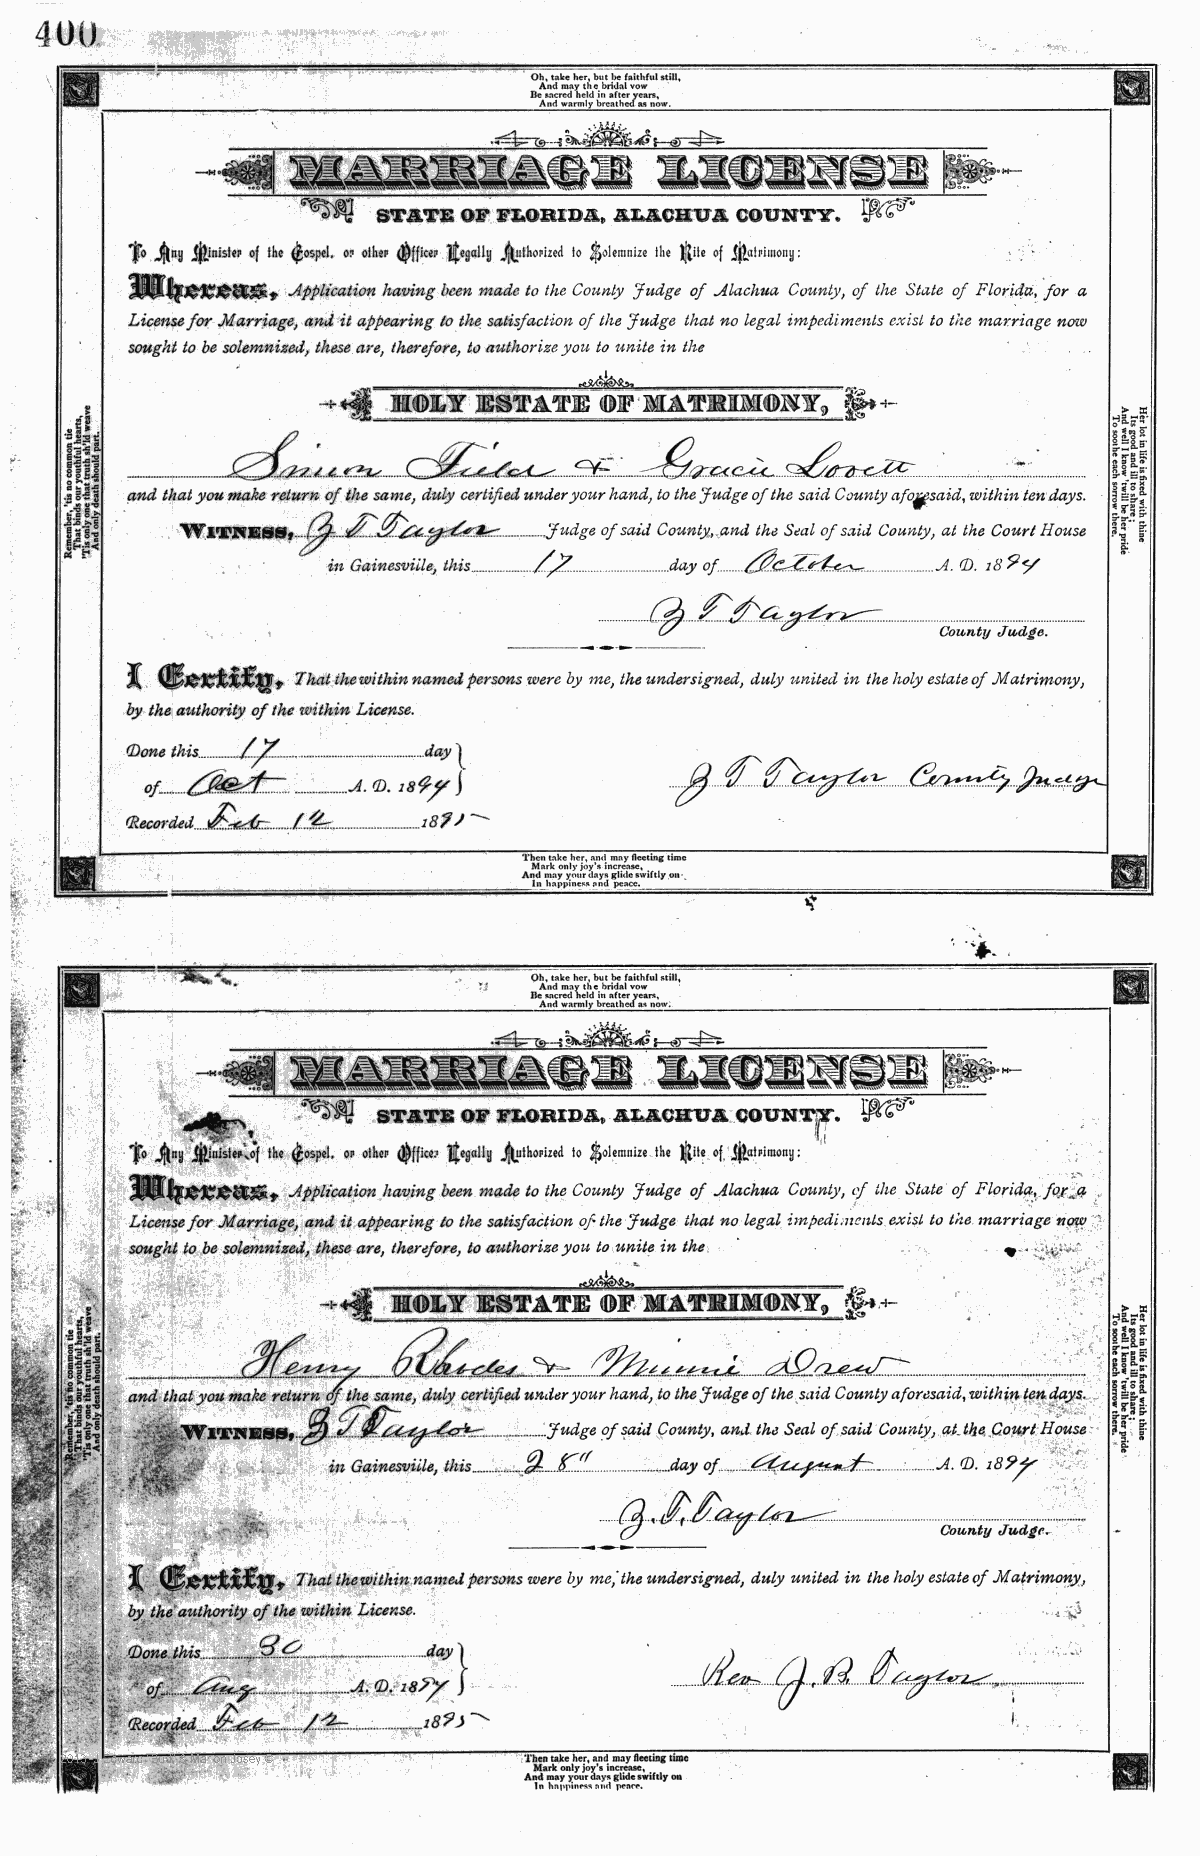 400
Oh, take her, but be faithful still,
And may the bridal vow
Be sacred held in after years,
And warmly breathed as now.
MARRIAGE LICENSE
STATE OF FLORIDA, ALACHUA COUNTY.
To Any Minister of the Gospel, or other Officer Legally Authorized to Solemnize the Rite of Matrimony:
Whereas, Application having been made to the County Judge of Alachua County, of the State of Florida, for a
License for Marriage, and it appearing to the satisfaction of the Judge that no legal impediments exist to the marriage now
sought to be solemnized, these are, therefore, to authorize you to unite in the
HOLY ESTATE OF MATRIMONY,
Simon Field & Gracie Lovett
and that you make return of the same, duly certified under your hand, to the Judge of the said County aforesaid, within ten days.
WITNESS, Z T Taylor Judge of said County, and the Seal of said County, at the Court House
in Gainesville, this 17 day of October A. D. 1894
Z T Taylor
County Judge.
I Certify, That the within named persons were by me, the undersigned, duly united in the holy estate of Matrimony,
by the authority of the within License.
Done this 17 day
of Oct A. D. 1894
Z T Taylor County Judge
Recorded Feb 12 1895
Remember, 'tis no common tie
That binds our youthful hearts,
'Tis only one that truth sh'ld weave
And only death should part.
Her lot in life is fixed with thine
Its good and ill to share;
And well I know 'twill be her pride
To soothe each sorrow there.
Then take her, and may fleeting time
Mark only joy's increase,
And may your days glide swiftly on
In happiness and peace.
Oh, take her, but be faithful still,
And may the bridal vow
Be sacred held in after years,
And warmly breathed as now.
MARRIAGE LICENSE
STATE OF FLORIDA, ALACHUA COUNTY.
To Any Minister of the Gospel, or other Officer Legally Authorized to Solemnize the Rite of Matrimony:
Whereas, Application having been made to the County Judge of Alachua County, of the State of Florida, for a
License for Marriage, and it appearing to the satisfaction of the Judge that no legal impediments exist to the marriage now
sought to be solemnized, these are, therefore, to authorize you to unite in the
HOLY ESTATE OF MATRIMONY,
Henry Rhodes & Minnie Drew
and that you make return of the same, duly certified under your hand, to the Judge of the said County aforesaid, within ten days.
WITNESS, Z T Taylor Judge of said County, and the Seal of said County, at the Court House
in Gainesville, this 28" day of August A. D. 1894
Z. T. Taylor
County Judge.
I Certify, That the within named persons were by me, the undersigned, duly united in the holy estate of Matrimony,
by the authority of the within License.
Done this 30 day
of Aug A. D. 1894
Rev J. B. Taylor
Recorded Feb 12 1895
Remember, 'tis no common tie
That binds our youthful hearts,
'Tis only one that truth sh'ld weave
And only death should part.
Her lot in life is fixed with thine
Its good and ill to share;
And well I know 'twill be her pride
To soothe each sorrow there.
Then take her, and may fleeting time
Mark only joy's increase,
And may your days glide swiftly on
In happiness and peace.